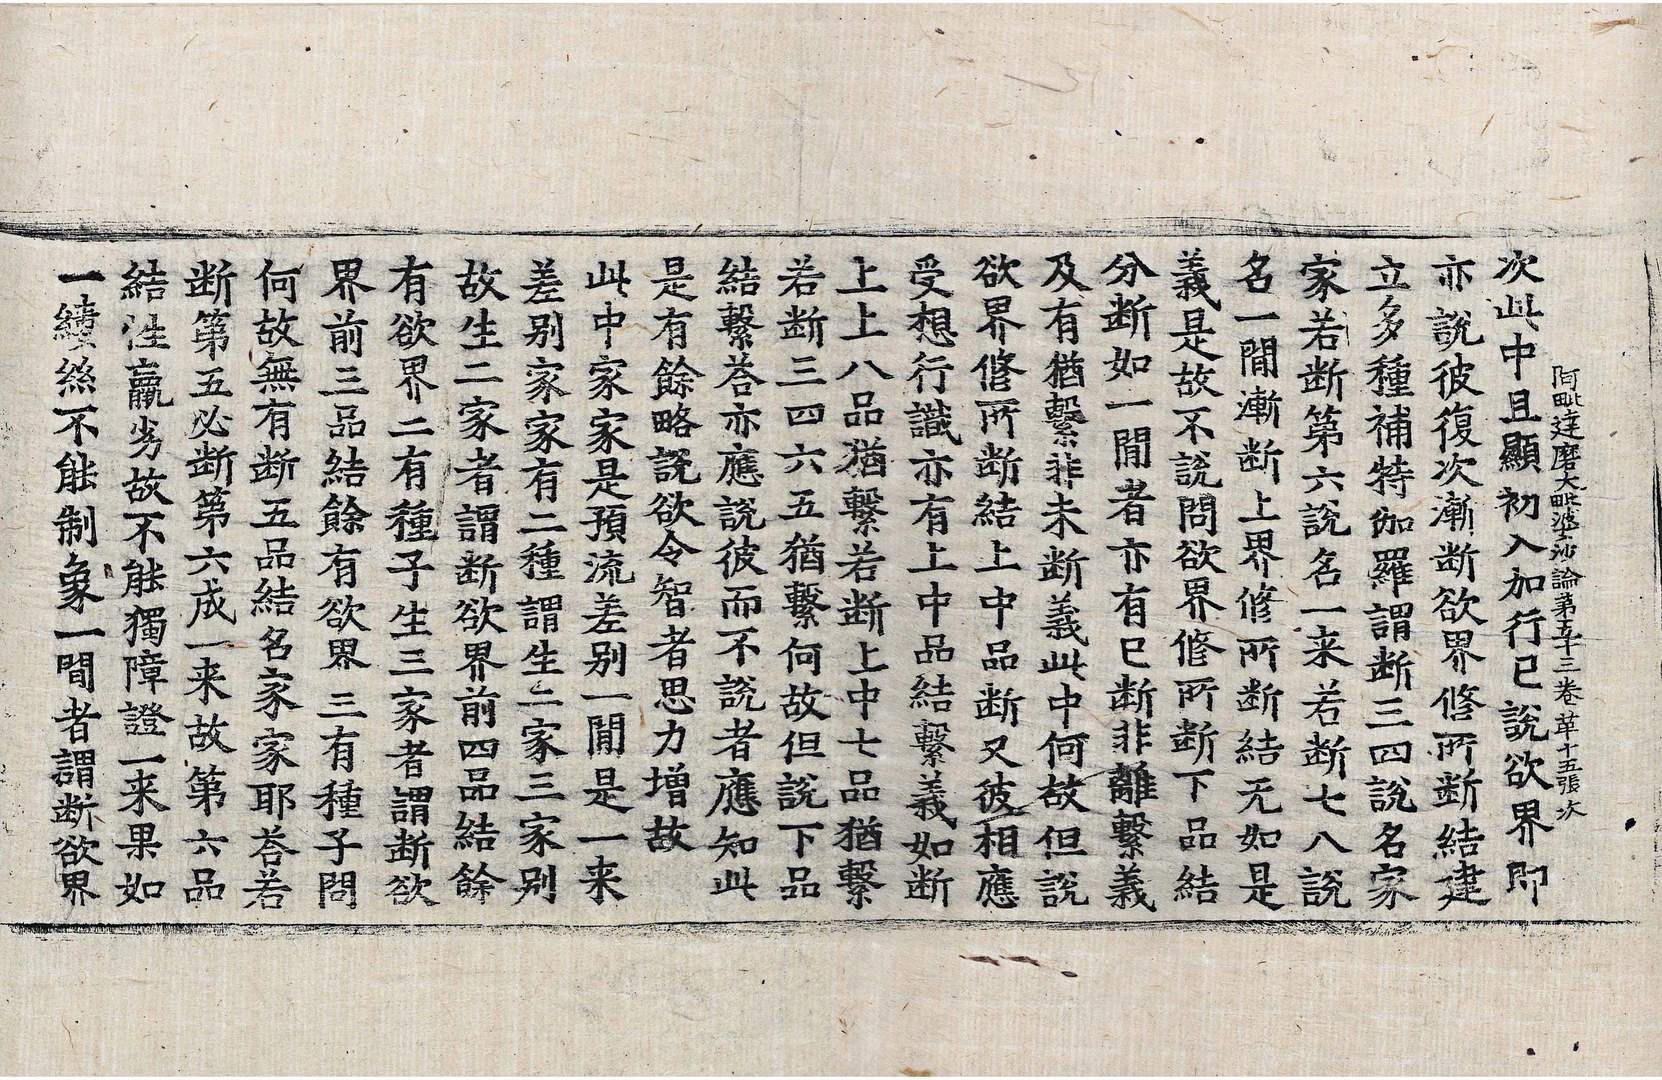 阿毗達磨大毗婆沙論第五十三卷 革 十五張 次
次此中且顯初入加行已說欲界即
亦說彼復次漸断欲界修所断結建
立多種補特伽羅謂断三四說名家
家若断第六說名一来若断七八說
名一閒漸断上界修所断結无如是
義是故不說問欲界修所断下品結
分断如一閒者亦有已断非離繫義
及有猶繫非未断義此中何故但說
欲界修所断結上中品断又彼相應
受想行識亦有上中品結繫義如断
上上八品猶繫若断上中七品猶繫
若断三四六五猶繫何故但說下品
結繫荅亦應說彼而不說者應知此
是有餘略說欲令智者思力增故
此中家家是預流差别一閒是一来
差别家家有二種謂生二家三家别
故生二家者謂断欲界前四品結餘
有欲界二有種子生三家者謂断欲
界前三品結餘有欲界三有種子問
何故無有断五品結名家家耶荅若
断第五必断第六成一来故第六品
結性羸劣故不能獨障證一来果如
一縷絲不能制象一閒者謂断欲界